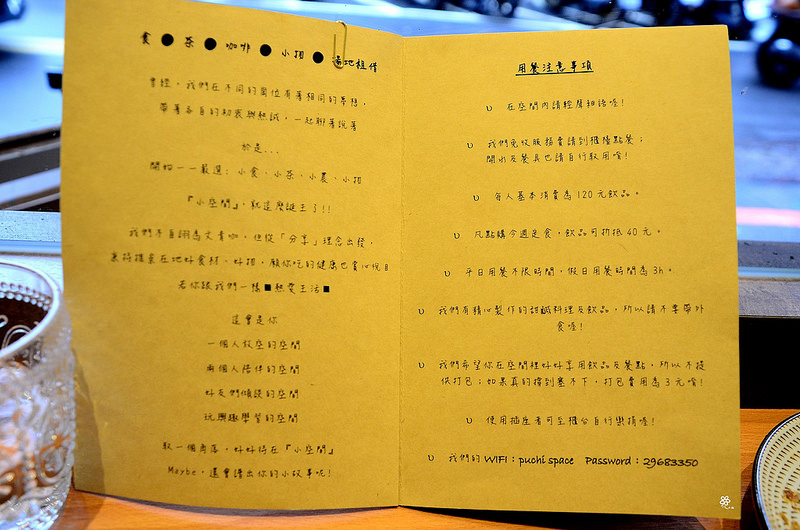 食 ● 茶 ● 咖啡 ● 小招 ● 場地租借
曾經，我們在不同的崗位有著相同的夢想，
帶著各自的初衷與熱誠，一起聊著說著
於是...
開始一一嚴選：小食、小茶、小農、小招
『小空間』，就這麼誕生了!!
我們不自詡為文青咖，但從「分享」理念出發，
若你跟我們一樣■熱愛生活■
這會是你
一個人放空的空間
兩個人陪伴的空間
好友們傾談的空間
玩樂趣學習的空間
執一個角落，好好待在『小空間』
Maybe，還會譜出你的小故事呢!
用餐注意事項
υ 在空間內請輕聲細語喔!
υ 我們免收服務費請到櫃檯點餐；
開水及餐具也請自行取用唷!
υ 每人基本消費為120元飲品。
υ 凡點購今週定食，飲品可折抵40元。
υ 平日用餐不限時間，假日用餐時間為3h。
υ 我們有精心製作的甜鹹料理及飲品，所以請不要帶外
食喔!
υ 我們希望你在空間裡好好享用飲品及餐點，所以不提
供打包；如果真的撐到塞不下，打包費用為3元唷!
υ 使用插座者可至櫃台自行樂捐喔!
υ 我們的WIFI：puchi space Password：29683350